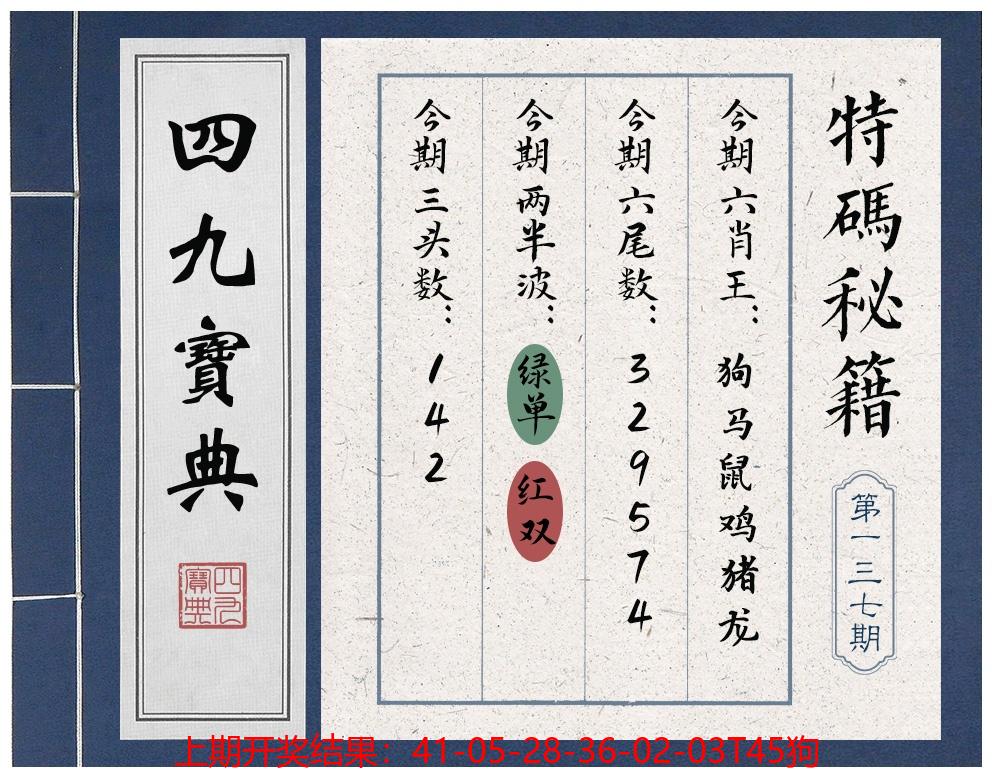 特碼秘籍
第一三七期
今期六肖王：狗马鼠鸡猪龙
今期六尾数：329574
今期两半波：绿单 红双
今期三头数：142
四九寶典
四九寶典
上期开奖结果：41-05-28-36-02-03T45狗